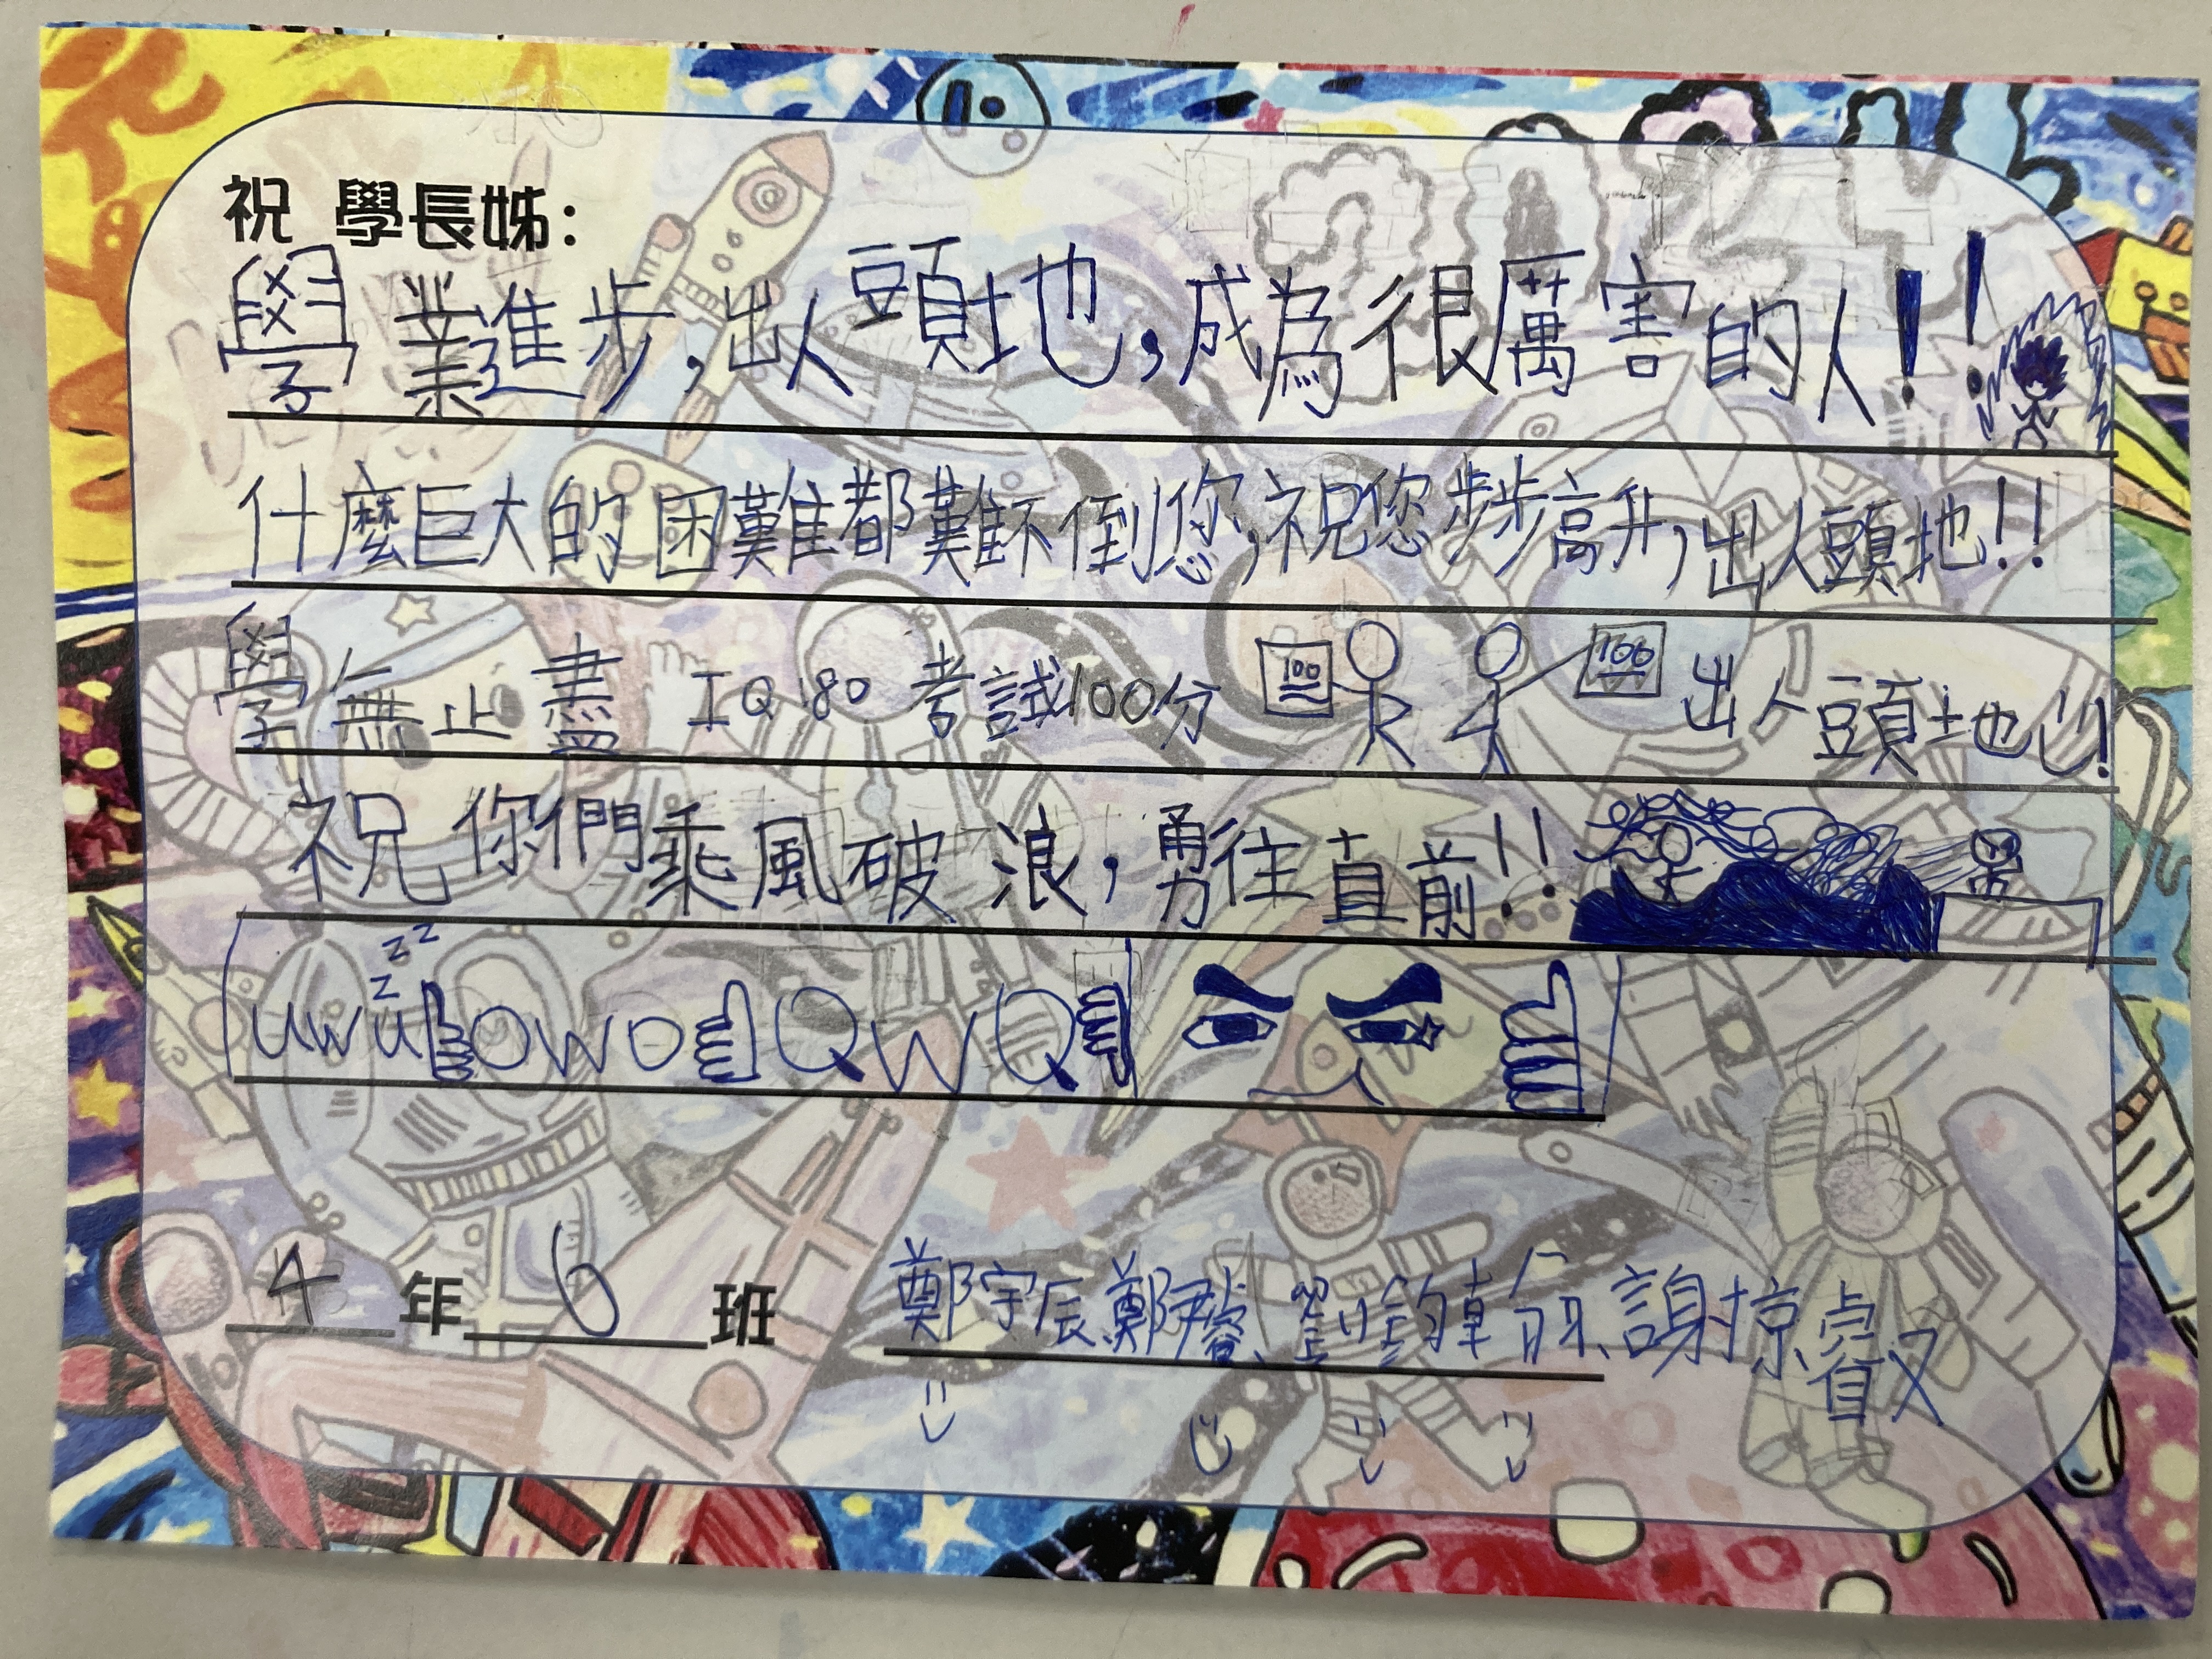 祝 學長姊:
學業進步,出人頭地,成為很厲害的人!!
什麼巨大的困難都難不倒您,祝您步步高升,出人頭地!!
學無止盡 IQ180 考試100分 100 100 出人頭地!
祝你們乘風破浪,勇往直前!!
zzz
uwu owo QwQ
4年6班
鄭宇辰、鄭尹